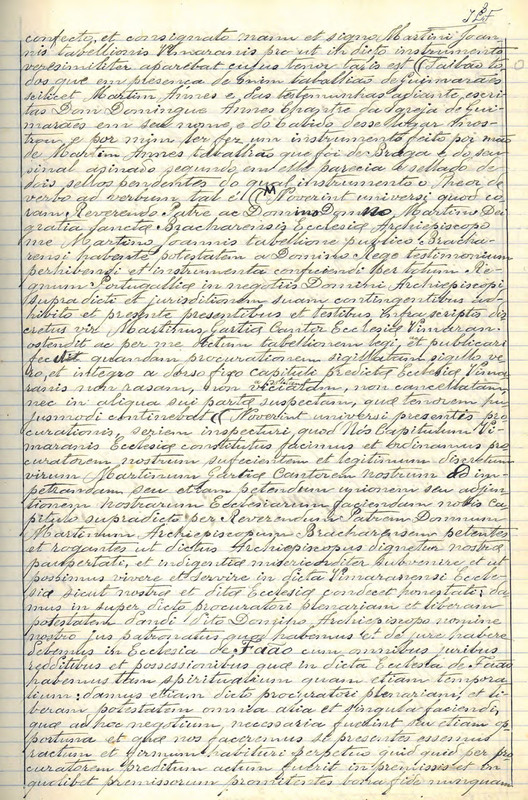 confecto, et consignato manu et signo, Martini Joan-
nis tabellionis Vimaranis pro ut in dicto instrumento
veresimiliter aparebat cujus tenor talis est (Saibão to-
dos que em presença de mim tabalião de Guimarães
scilicet Martim Annes e das testemunhas adiante escri-
tas Dom Domingue Annes Chantre da Igreja de Gui-
marães em seu nome, e do Cabido desse lugar mos-
trou, e por mim ler fez um instrumento feito por mão
de Martim Annes tabalião que foi de Braga e do seu
sinal asinado segundo em ella parecia e sellado de
dois sellos pendentes do qual instrumento o theor de
verbo ad verbum tal é (Noverint universi quod co-
ram Reverendo Patre ac Domino Domno, Martino Dei
gratia sancta Bracharensis Ecclesiæ Archiepiscopo
me Martino Joannis tabellione publico Bracha-
rensi habente potestatem a Domino Rege testimonium
perhibendi et instrumenta conficiendi per totum Re-
gnum Portugalliæ in negotiis Domini Archiepiscopi
supradicti et jurisditionem suam contingentibus ex-
hibito et presente presentibus et testibus infrascriptis dis-
cretus vir Martinus Gartiæ Cantor Ecclesiæ Vimaran.
ostendit ac per me dictum tabellionem legi, et publicari
fecit quandam procurationem sigillatam sigillo ve-
ro, et integro a dorso fixo Capituli predictæ Ecclesiæ Vima-
ranis non rasam, non viciatam, non cancellatam
nec in aliqua sui parte suspectam, quæ tenorem hu-
jusmodi continebat (Noverint universi presentis pro-
curationis, seriem inspecturi quod Nos Capitulum Vi-
maranis Ecclesiæ constitutus facimus et ordinamus pro-
curatorem nostrum suficientem et legitimum discretum
virum Martinum Gartiæ Cantorem nostrum Ad im-
petrandam seu etiam petendum unionem seu adjun-
tionem nostrarum Ecclesiarum faciendam nobis Ca-
pitulo supradicto per Reverendum Patrem Domnum
Martinum Archiepiscopum Bracharensem petentes
et rogantes ut dictus Archiepiscopus dignetur nostræ
paupertati, et indigentiæ misericorditer subvenire et ut
possimus vivere et servire in dicta Vimaranensi Eccle-
siæ sicut nostræ et ditæ Ecclesiæ condecet honestati; da-
mus in super dicto procuratori plenariam et liberam
potestatem dandi dito Domino Archiepiscopo nomine
nostro jus patronatus quod habemus et de jure habere
debemus in Ecclesia de Faão cum omnibus juribus
redditibus et possessionibus quæ in dicta Ecclesia de Faão
habemus tam spiritualium quam etiam tempora-
lium: damus etiam dicto procuratori plenariam, et li-
beram potestatem omnia alia et singula faciendi,
quæ ad hoc negotium, necessaria fuerint seu etiam op-
portuna et quæ nos faceremus si presentes essemus
ractum et firmum habituri perpetuo quid quid per pro-
curatorem preditum actum fuerit in premissis et in
quolibet premissorum promitentes bona fide nunquam